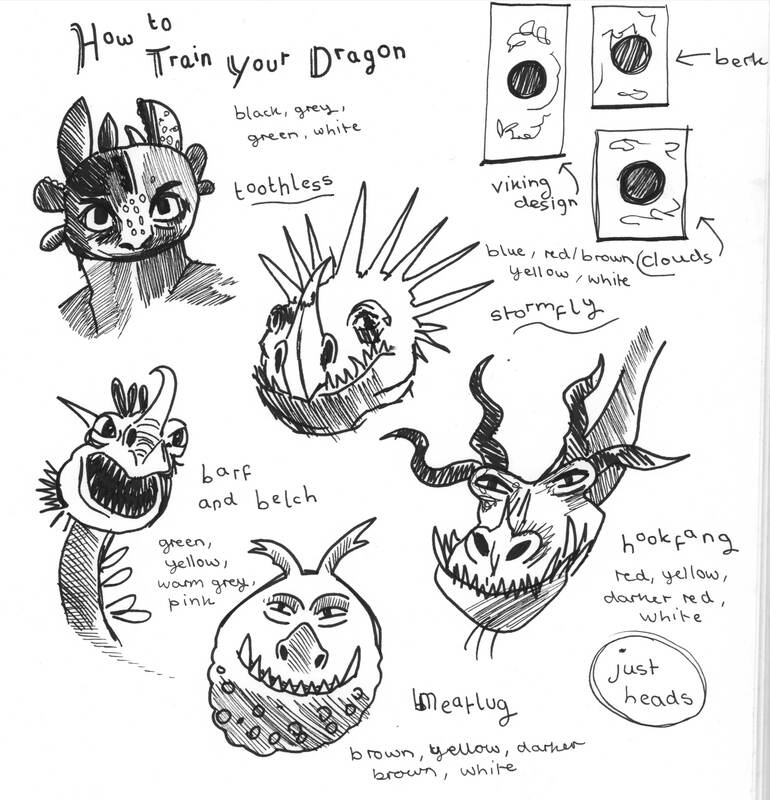 How to
Train Your Dragon
black, grey,
green, white
toothless
berk
viking
design
clouds
blue, red/brown
yellow, white
stormfly
barf
and belch
green,
yellow,
warm grey,
pink
hookfang
red, yellow,
darker red,
white
just
heads
meatlug
brown, yellow, darker
brown, white